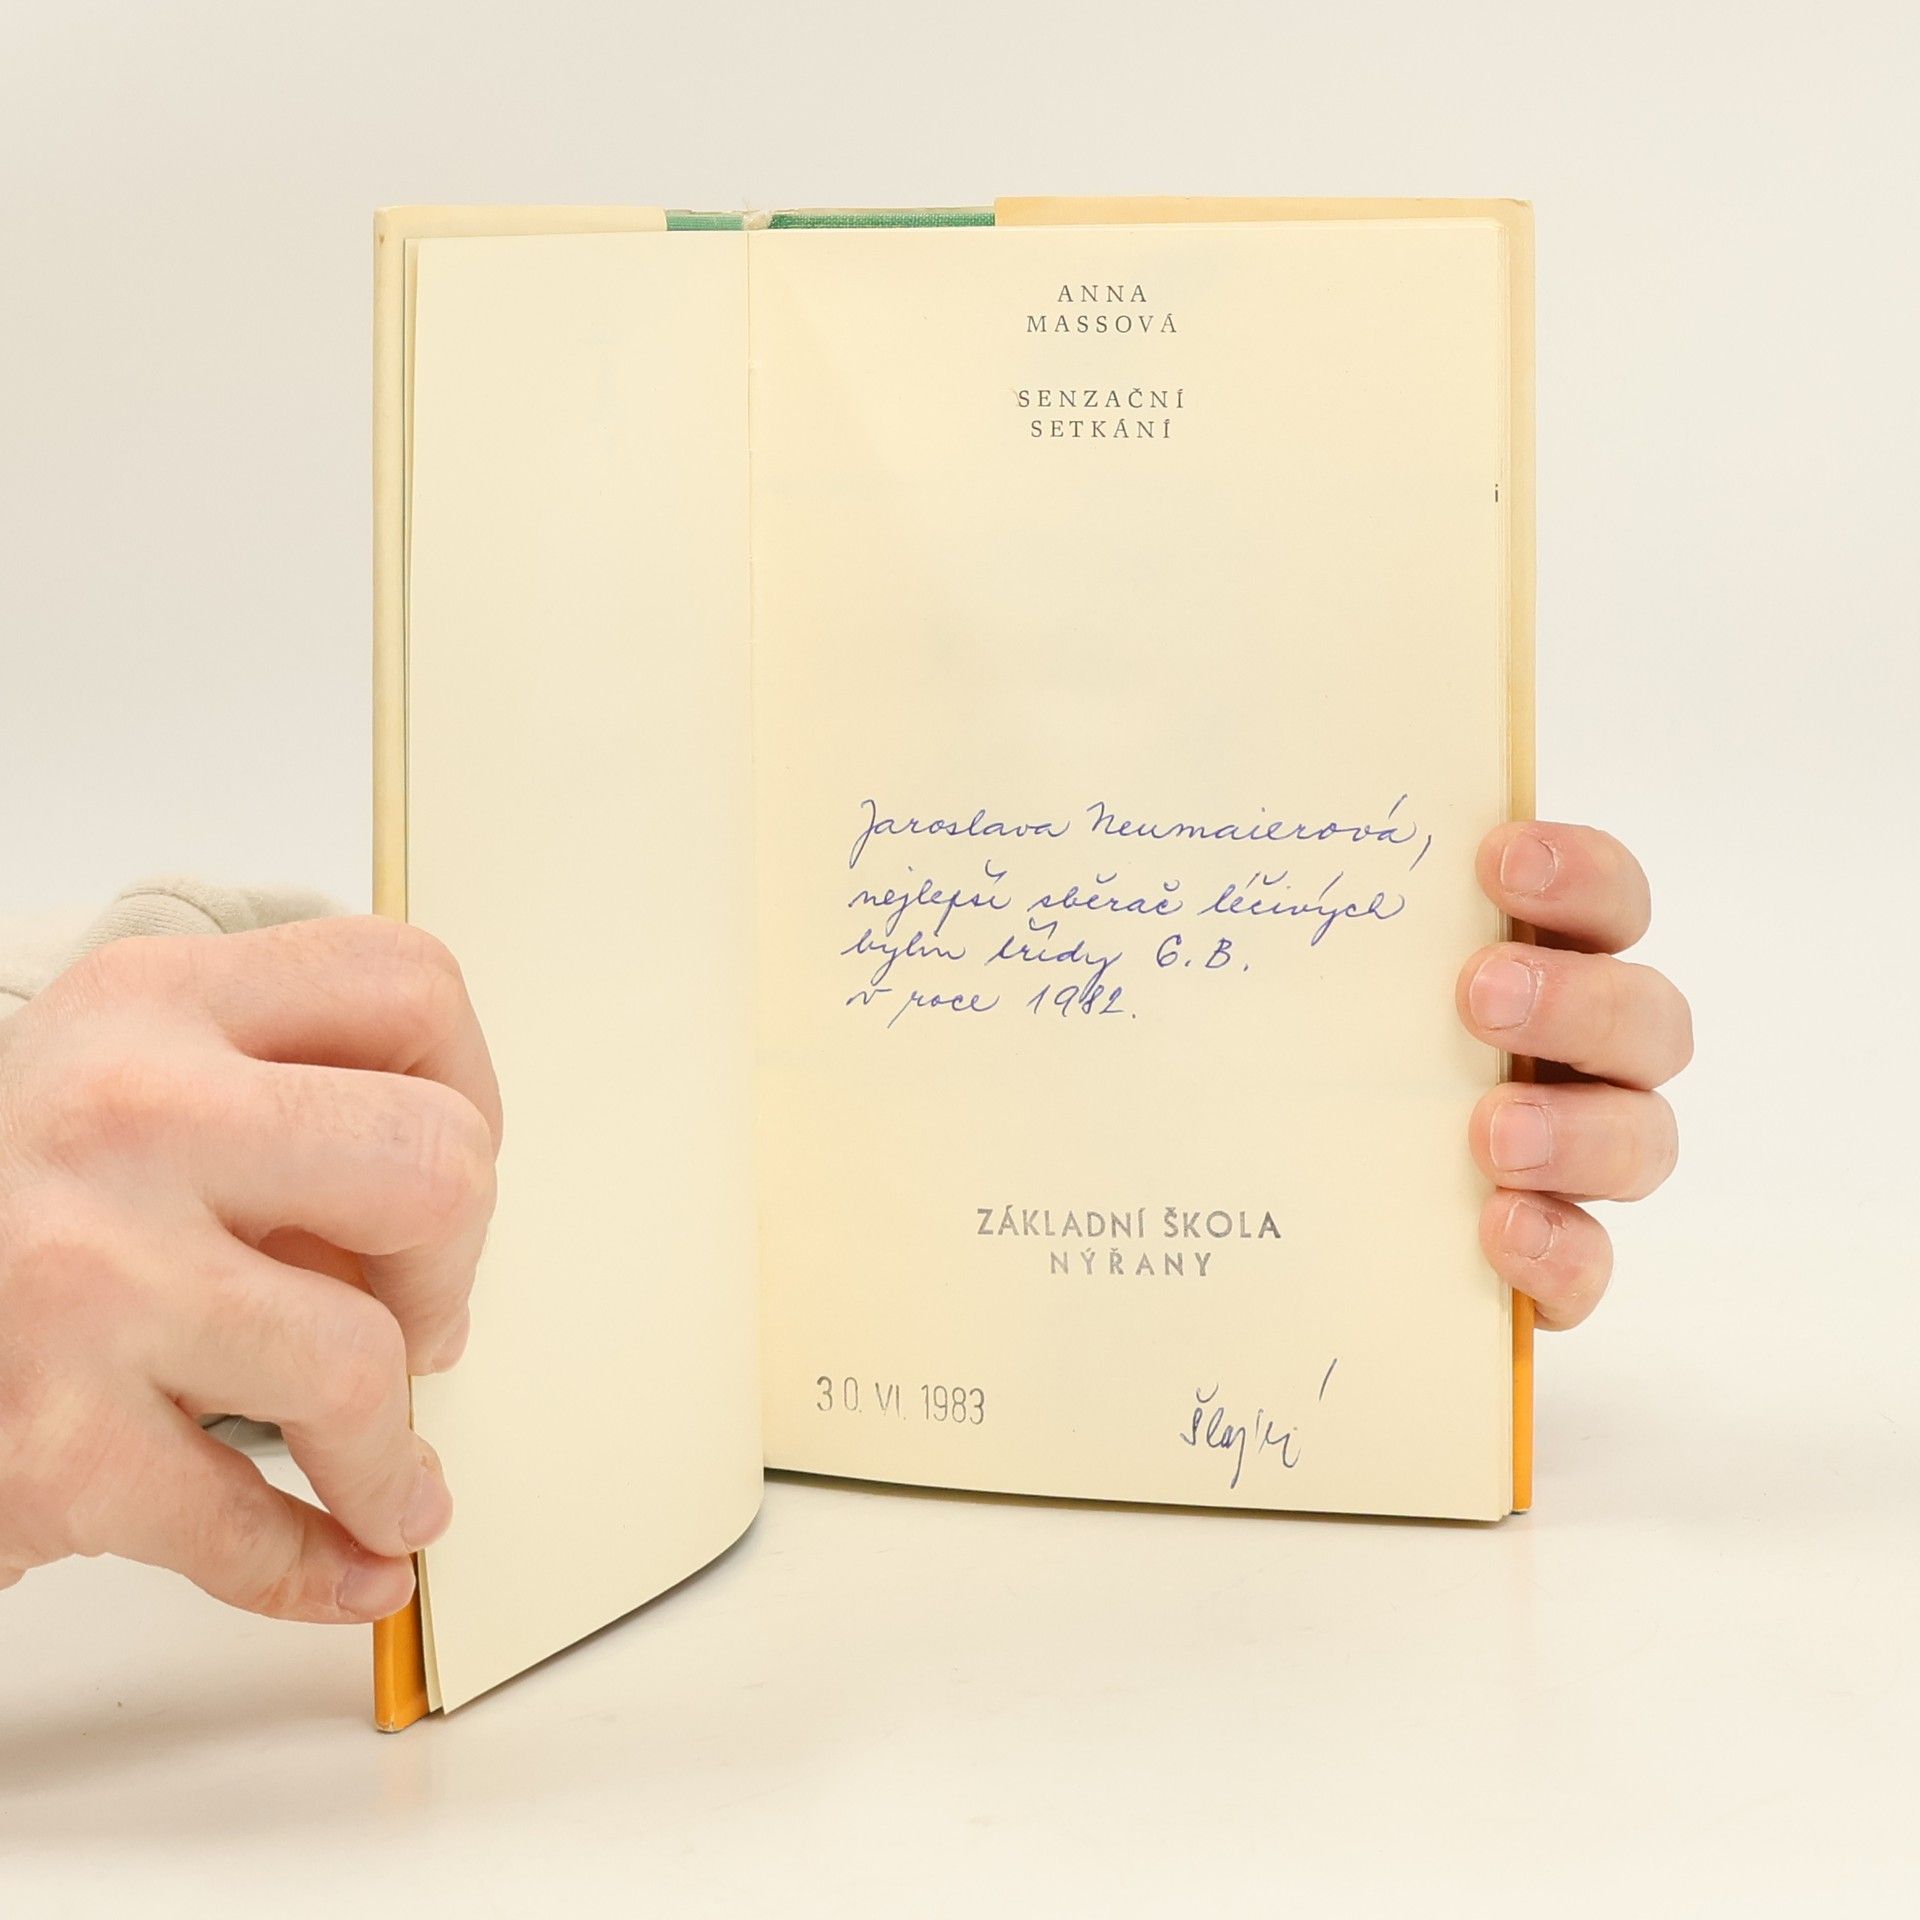 ANNA
MASSOVÁ
SENZAČNÍ
SETKÁNÍ
i
Jaroslava Neumaierová,
nejlepší sběrač léčivých
bylin třídy 6. B.
v roce 1982.
ZÁKLADNÍ ŠKOLA
NÝŘANY
30. VI. 1983